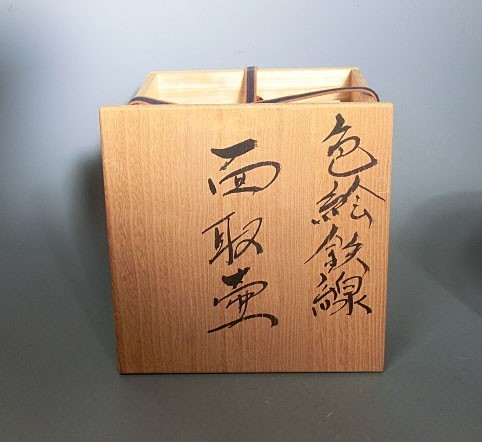 色絵鉄線
面取壷